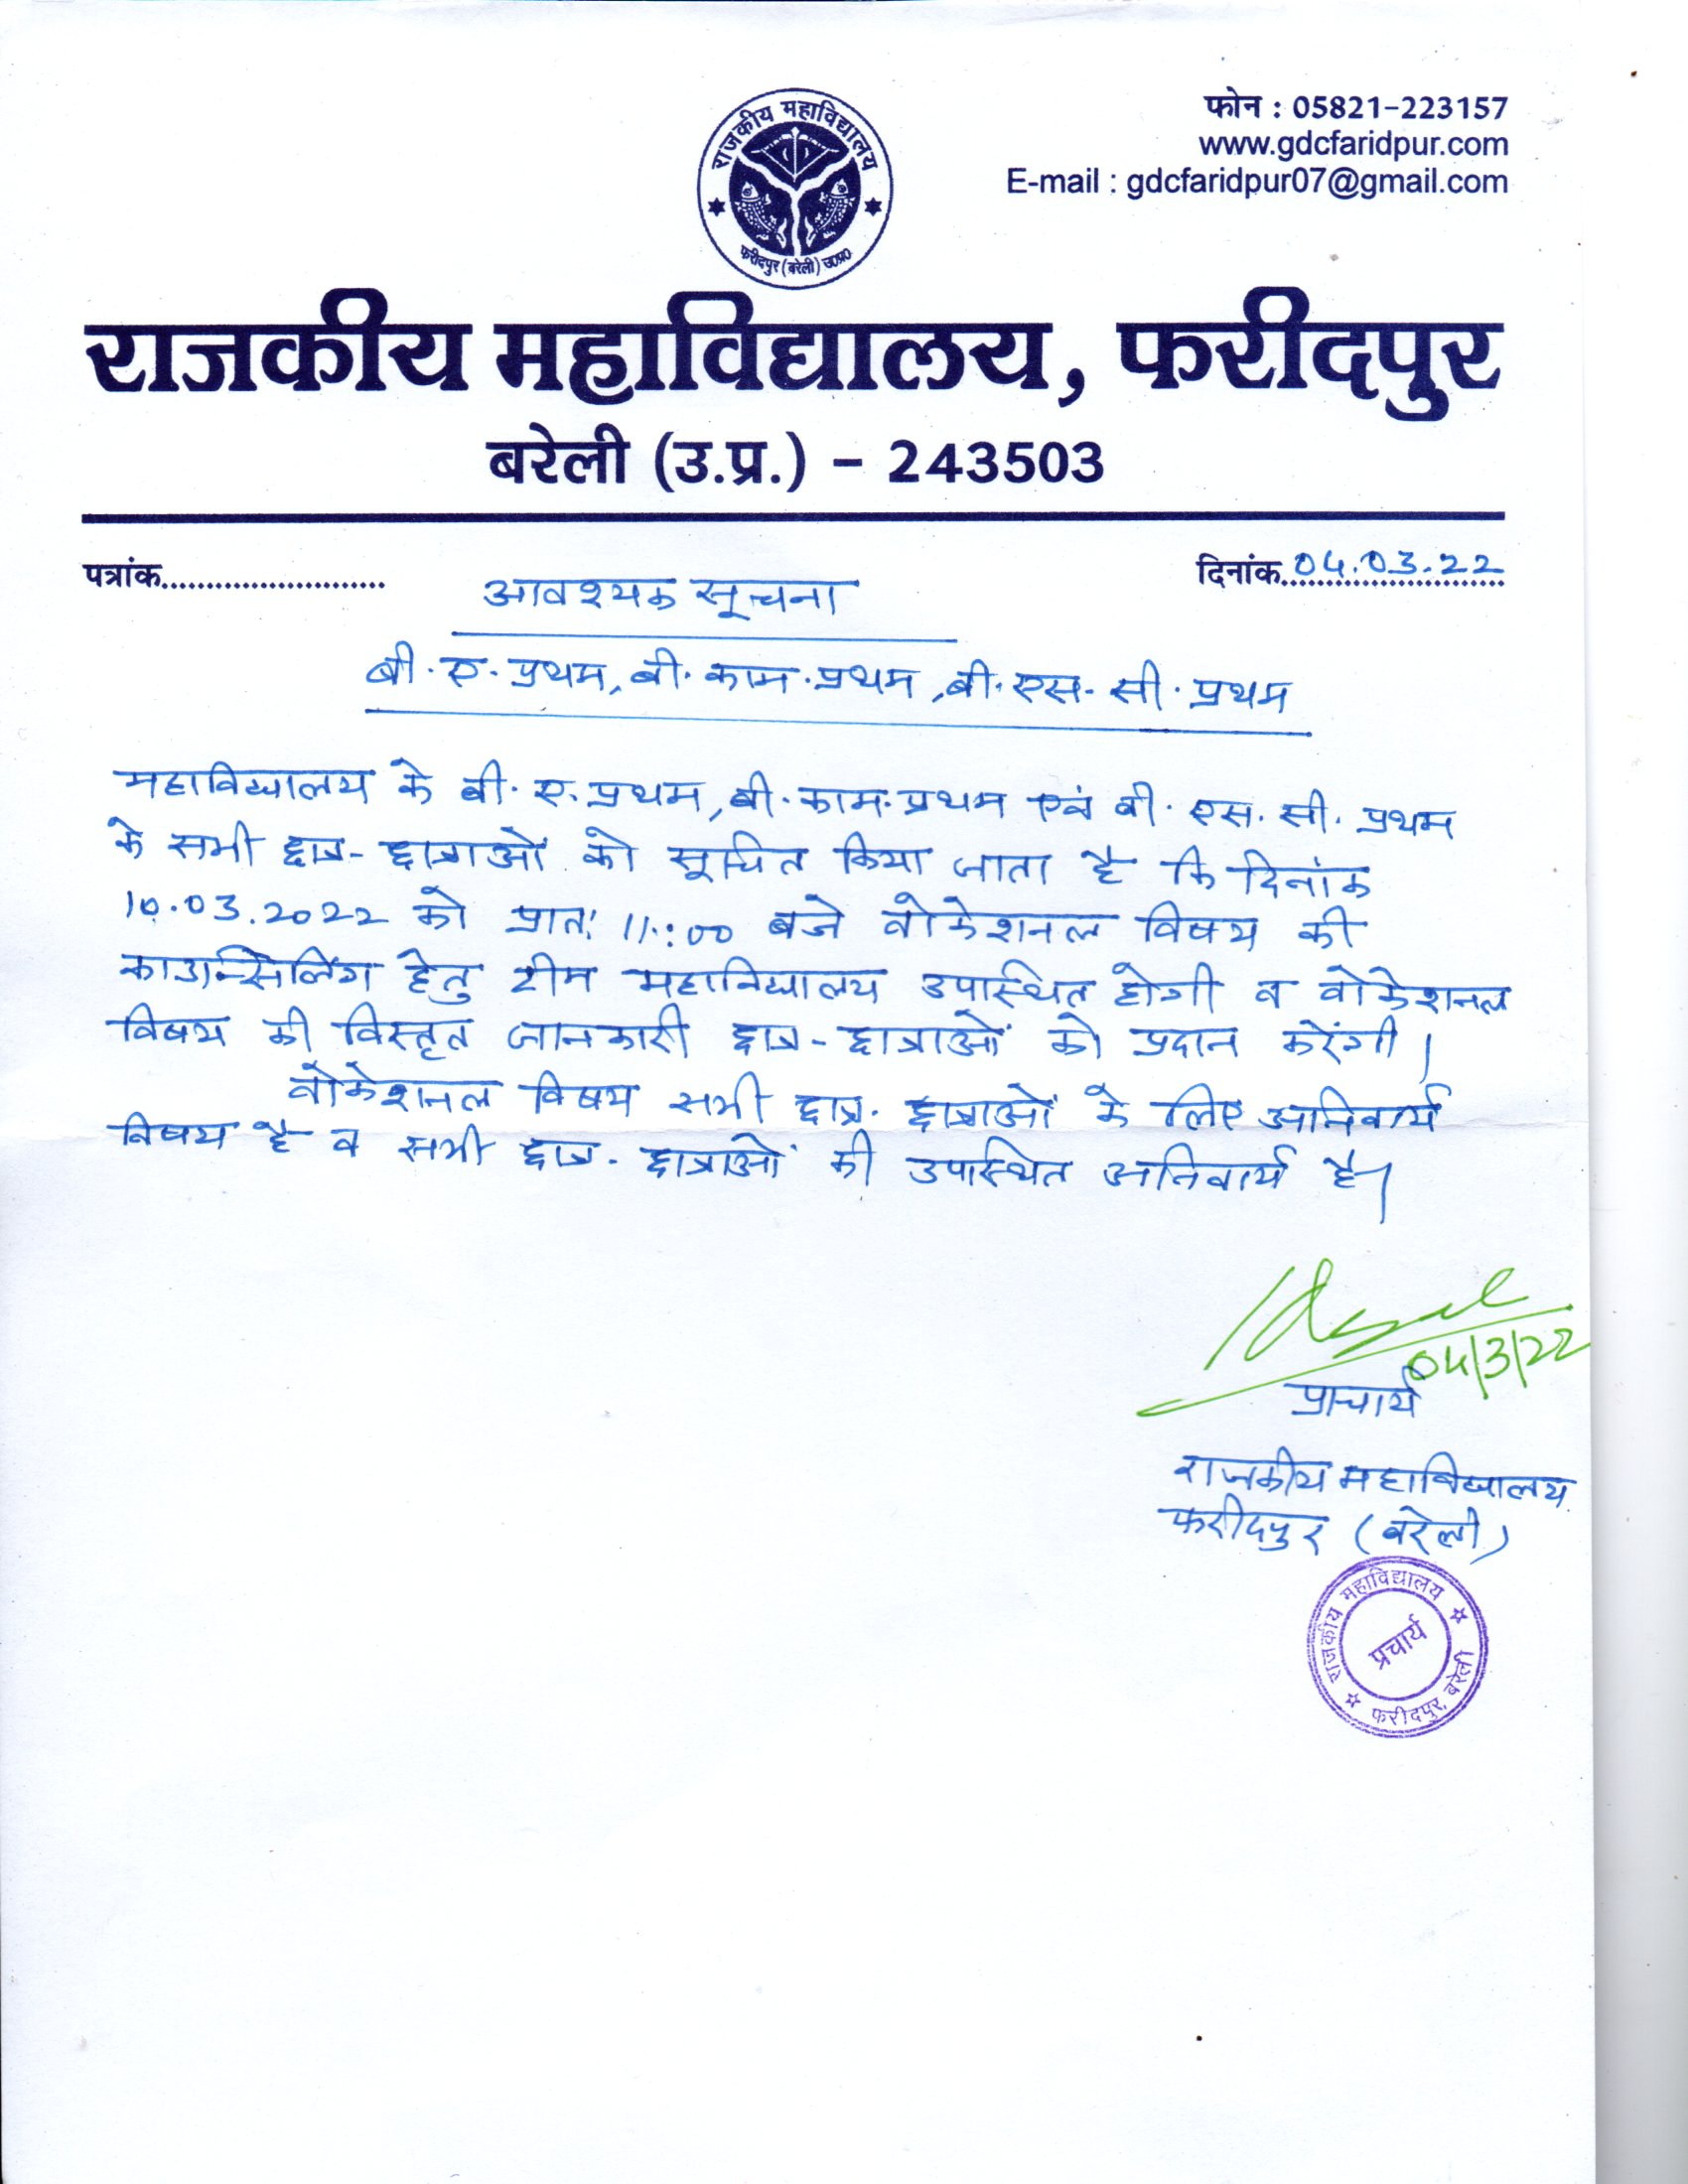 राजकीय महाविद्यालय
फरीदपुर (बरेली) उ०प्र०
फोन : 05821-223157
www.gdcfaridpur.com
E-mail : gdcfaridpur07@gmail.com
राजकीय महाविद्यालय, फरीदपुर
बरेली (उ.प्र.) - 243503
पत्रांक........................ दिनांक 04.03.22
आवश्यक सूचना
बी.ए. प्रथम, बी. काम. प्रथम, बी. एस. सी. प्रथम
महाविद्यालय के बी. ए. प्रथम, बी. काम. प्रथम एवं बी. एस. सी. प्रथम
के सभी छात्र-छात्राओं को सूचित किया जाता है कि दिनांक
10.03.2022 को प्रातः 11:00 बजे वोकेशनल विषय की
काउन्सिलिंग हेतु टीम महाविद्यालय उपास्थित होगी व वोकेशनल
विषय की विस्तृत जानकारी छात्र-छात्राओं को प्रदान करेंगी।
वोकेशनल विषय सभी छात्र. छात्राओं के लिए अनिवार्य
विषय है व सभी छात्र. छात्राओं की उपास्थित अनिवार्य है।
04/3/22
प्राचार्य
राजकीय महाविद्यालय
फरीदपुर (बरेली)
राजकीय महाविद्यालय
प्रचार्य
फरीदपुर, बरेली